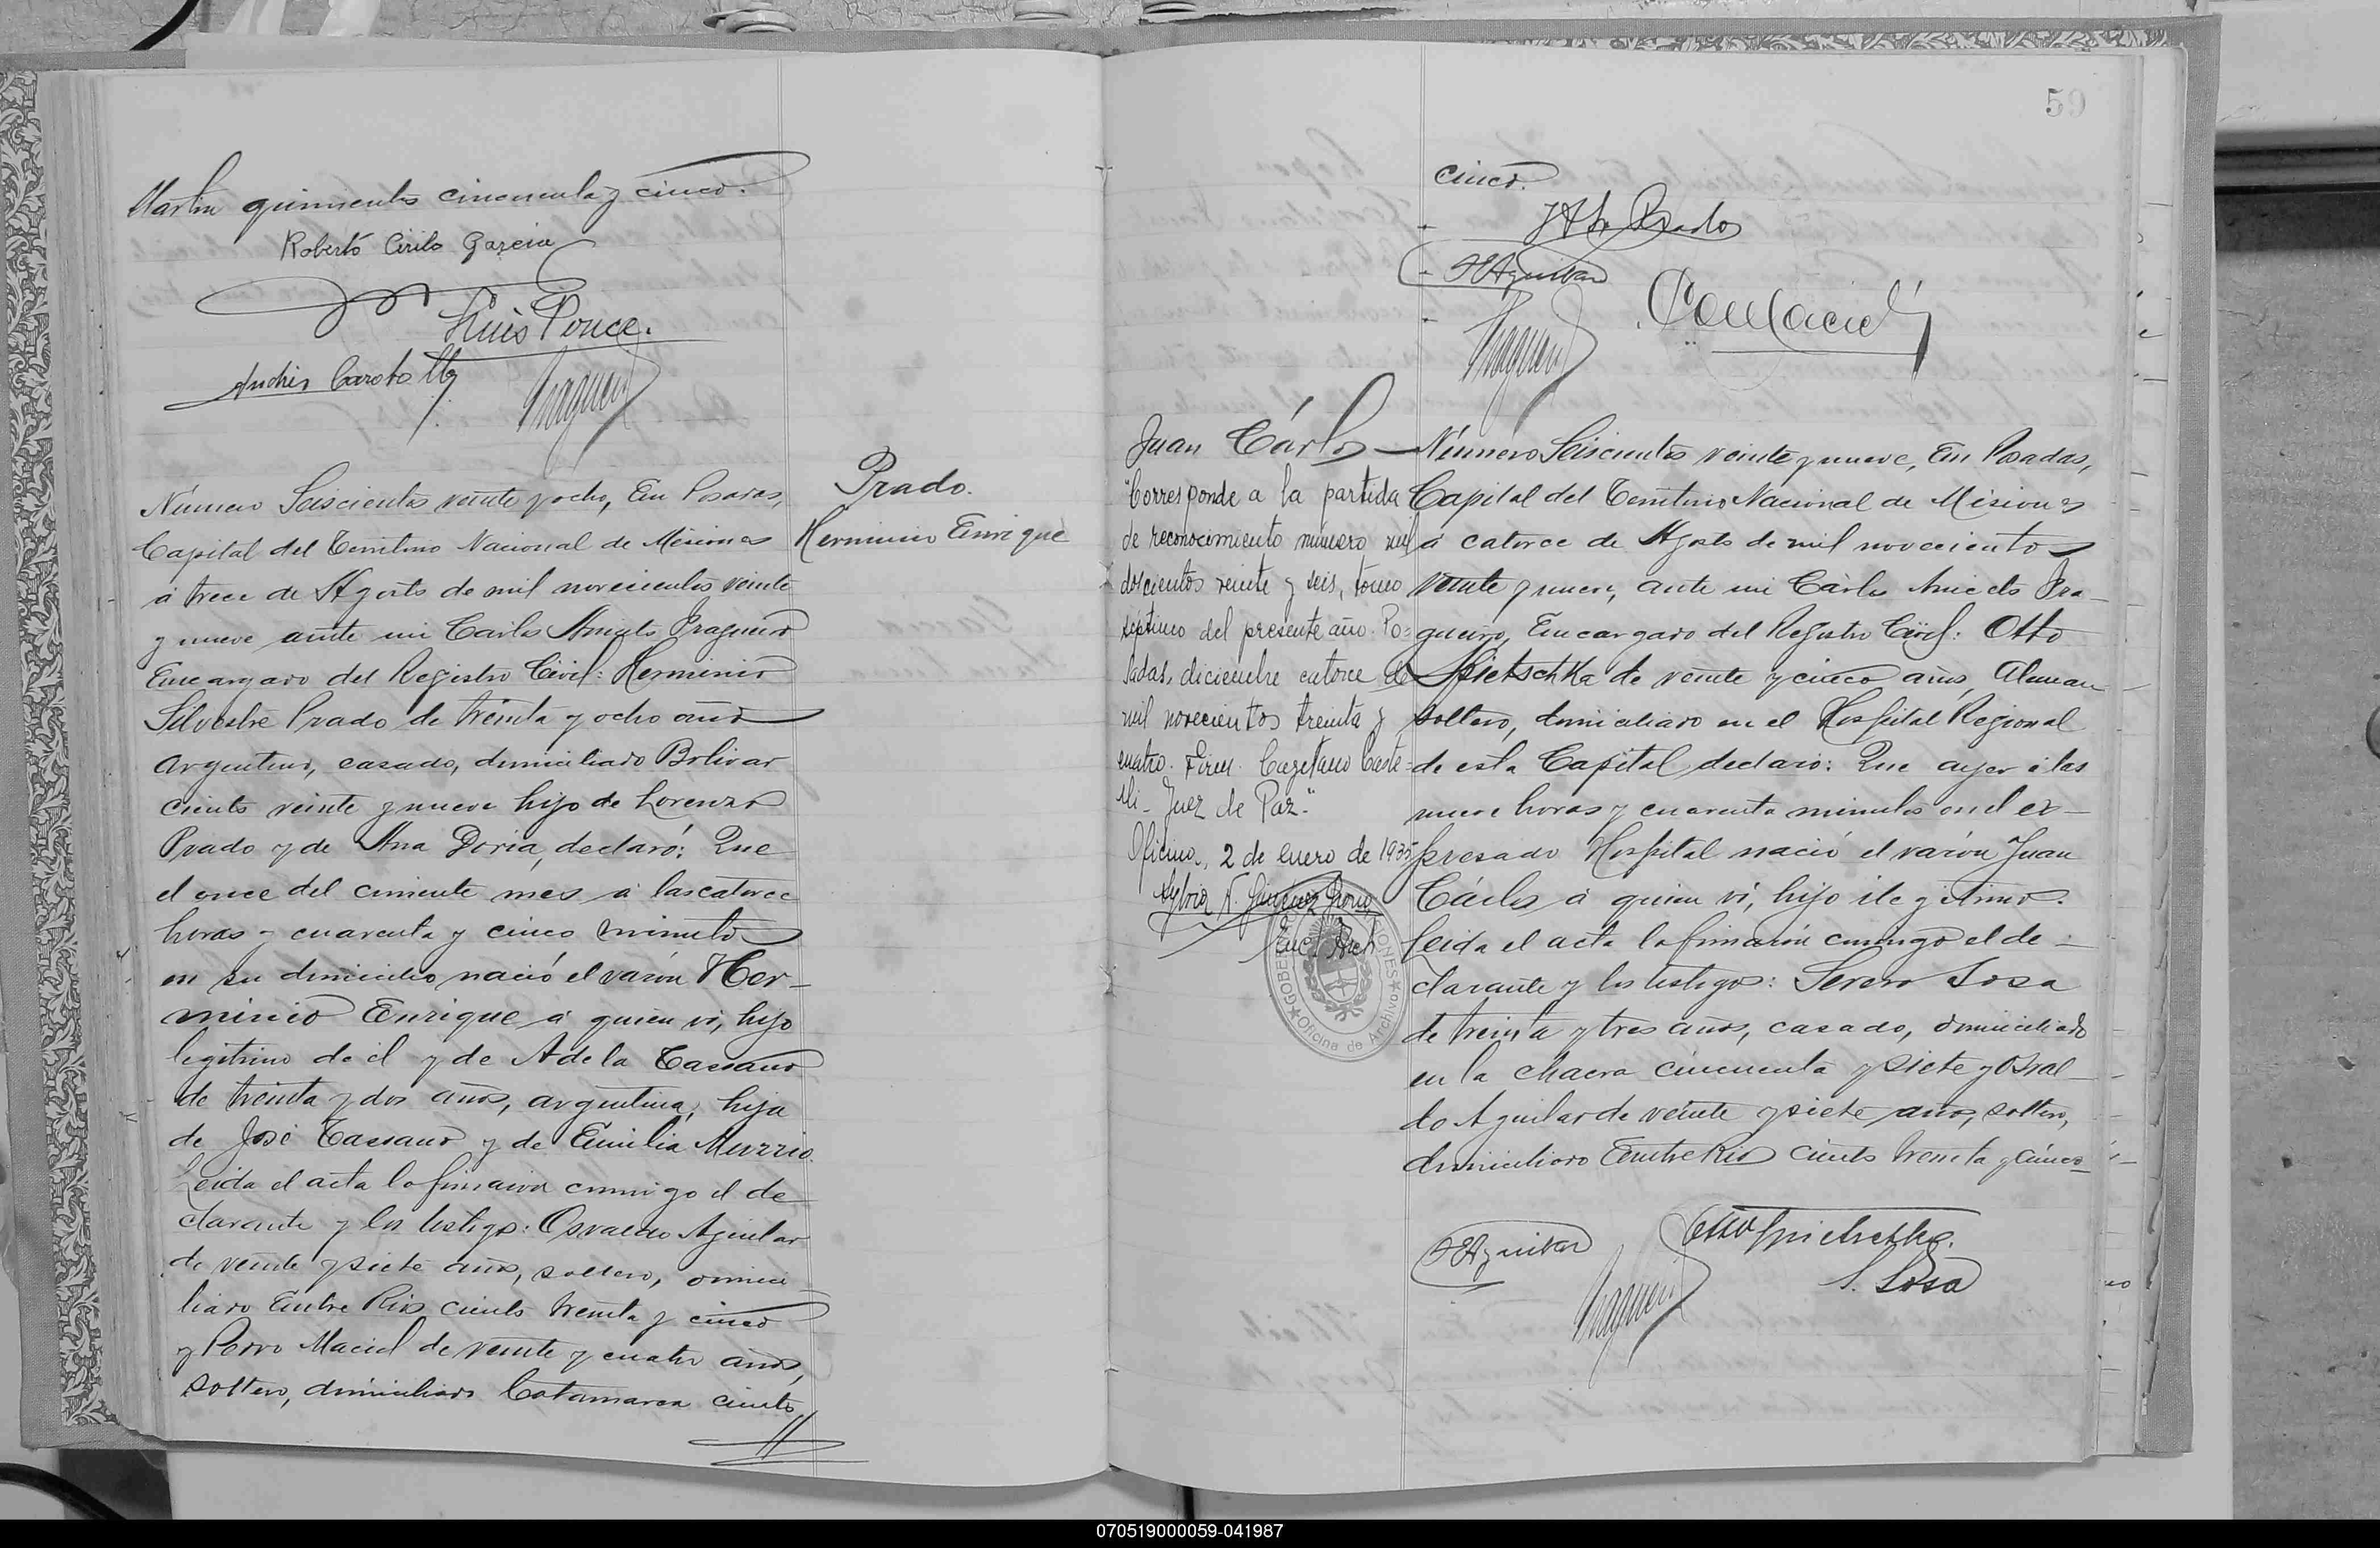 Martin quinientos cincuenta y cinco.
Roberto Cirilo Garcia
Luis Ponce.
Andrés Caroto
Número Seiscientos veinte y ocho, En Posadas,
Capital del Territorio Nacional de Misiones
á trece de Agosto de mil novecientos veinte
y nueve ante mi Carlos Aniceto Fragueiro
Encargado del Registro Civil: Herminio
Silvestre Prado de treinta y ocho años
argentino, casado, domiciliado Bolivar
ciento veinte y nueve hijo de Lorenzo
Prado y de Ana Doria, declaró: Que
el once del corriente mes á las catorce
horas y cuarenta y cinco minutos
en su domicilio nació el varón Her-
minio Enrique á quien ví, hijo
legítimo de él y de Adela Tassano
de treinta y dos años, argentina, hija
de José Tassano y de Emilia Murzio.
Leida el acta la firmaron conmigo el de
clarante y los testigos: Osvaldo Aguilar
de veinte y siete años, soltero, domici
liado Entre Rios ciento treinta y cinco
y Pedro Maciel de veinte y cuatro años,
soltero, domiciliado Catamarca ciento
Prado.
Herminio Enrique
59
cinco.
Prado
Aguilar
Juan Cárlos
"Corresponde a la partida
de reconocimiento número mil
doscientos veinte y seis, tomo
séptimo del presente año. Po=
sadas, diciembre catorce de
mil novecientos treinta y
cuatro. Firm. Cayetano Caste=
lli - Juez de Paz."
Oficina, 2 de enero de 1935
Oficina de Archivo
Número Seiscientos veinte y nueve, En Posadas,
Capital del Territorio Nacional de Misiones
á catorce de Agosto de mil novecientos
veinte y nueve, ante mi Cárlos Aniceto Fra-
gueiro, Encargado del Registro Civil: Otto
Spietschka de veinte y cinco años, Aleman
soltero, domiciliado en el Hospital Regional
de esta Capital declaró: Que ayer á las
nueve horas y cuarenta minutos en el ex-
presado Hospital nació el varón Juan
Cárlos á quien ví, hijo ilegítimo.
Leida el acta la firmarón conmigo el de-
clarante y los testigos: Severo Sosa
de treinta y tres años, casado, domiciliado
en la chacra cincuenta y siete y Osval-
do Aguilar de veinte y siete años, soltero,
domiciliado Entre Rios ciento treinta y cinco
Aguilar
Otto Spietschka.
S. Sosa
070519000059-041987